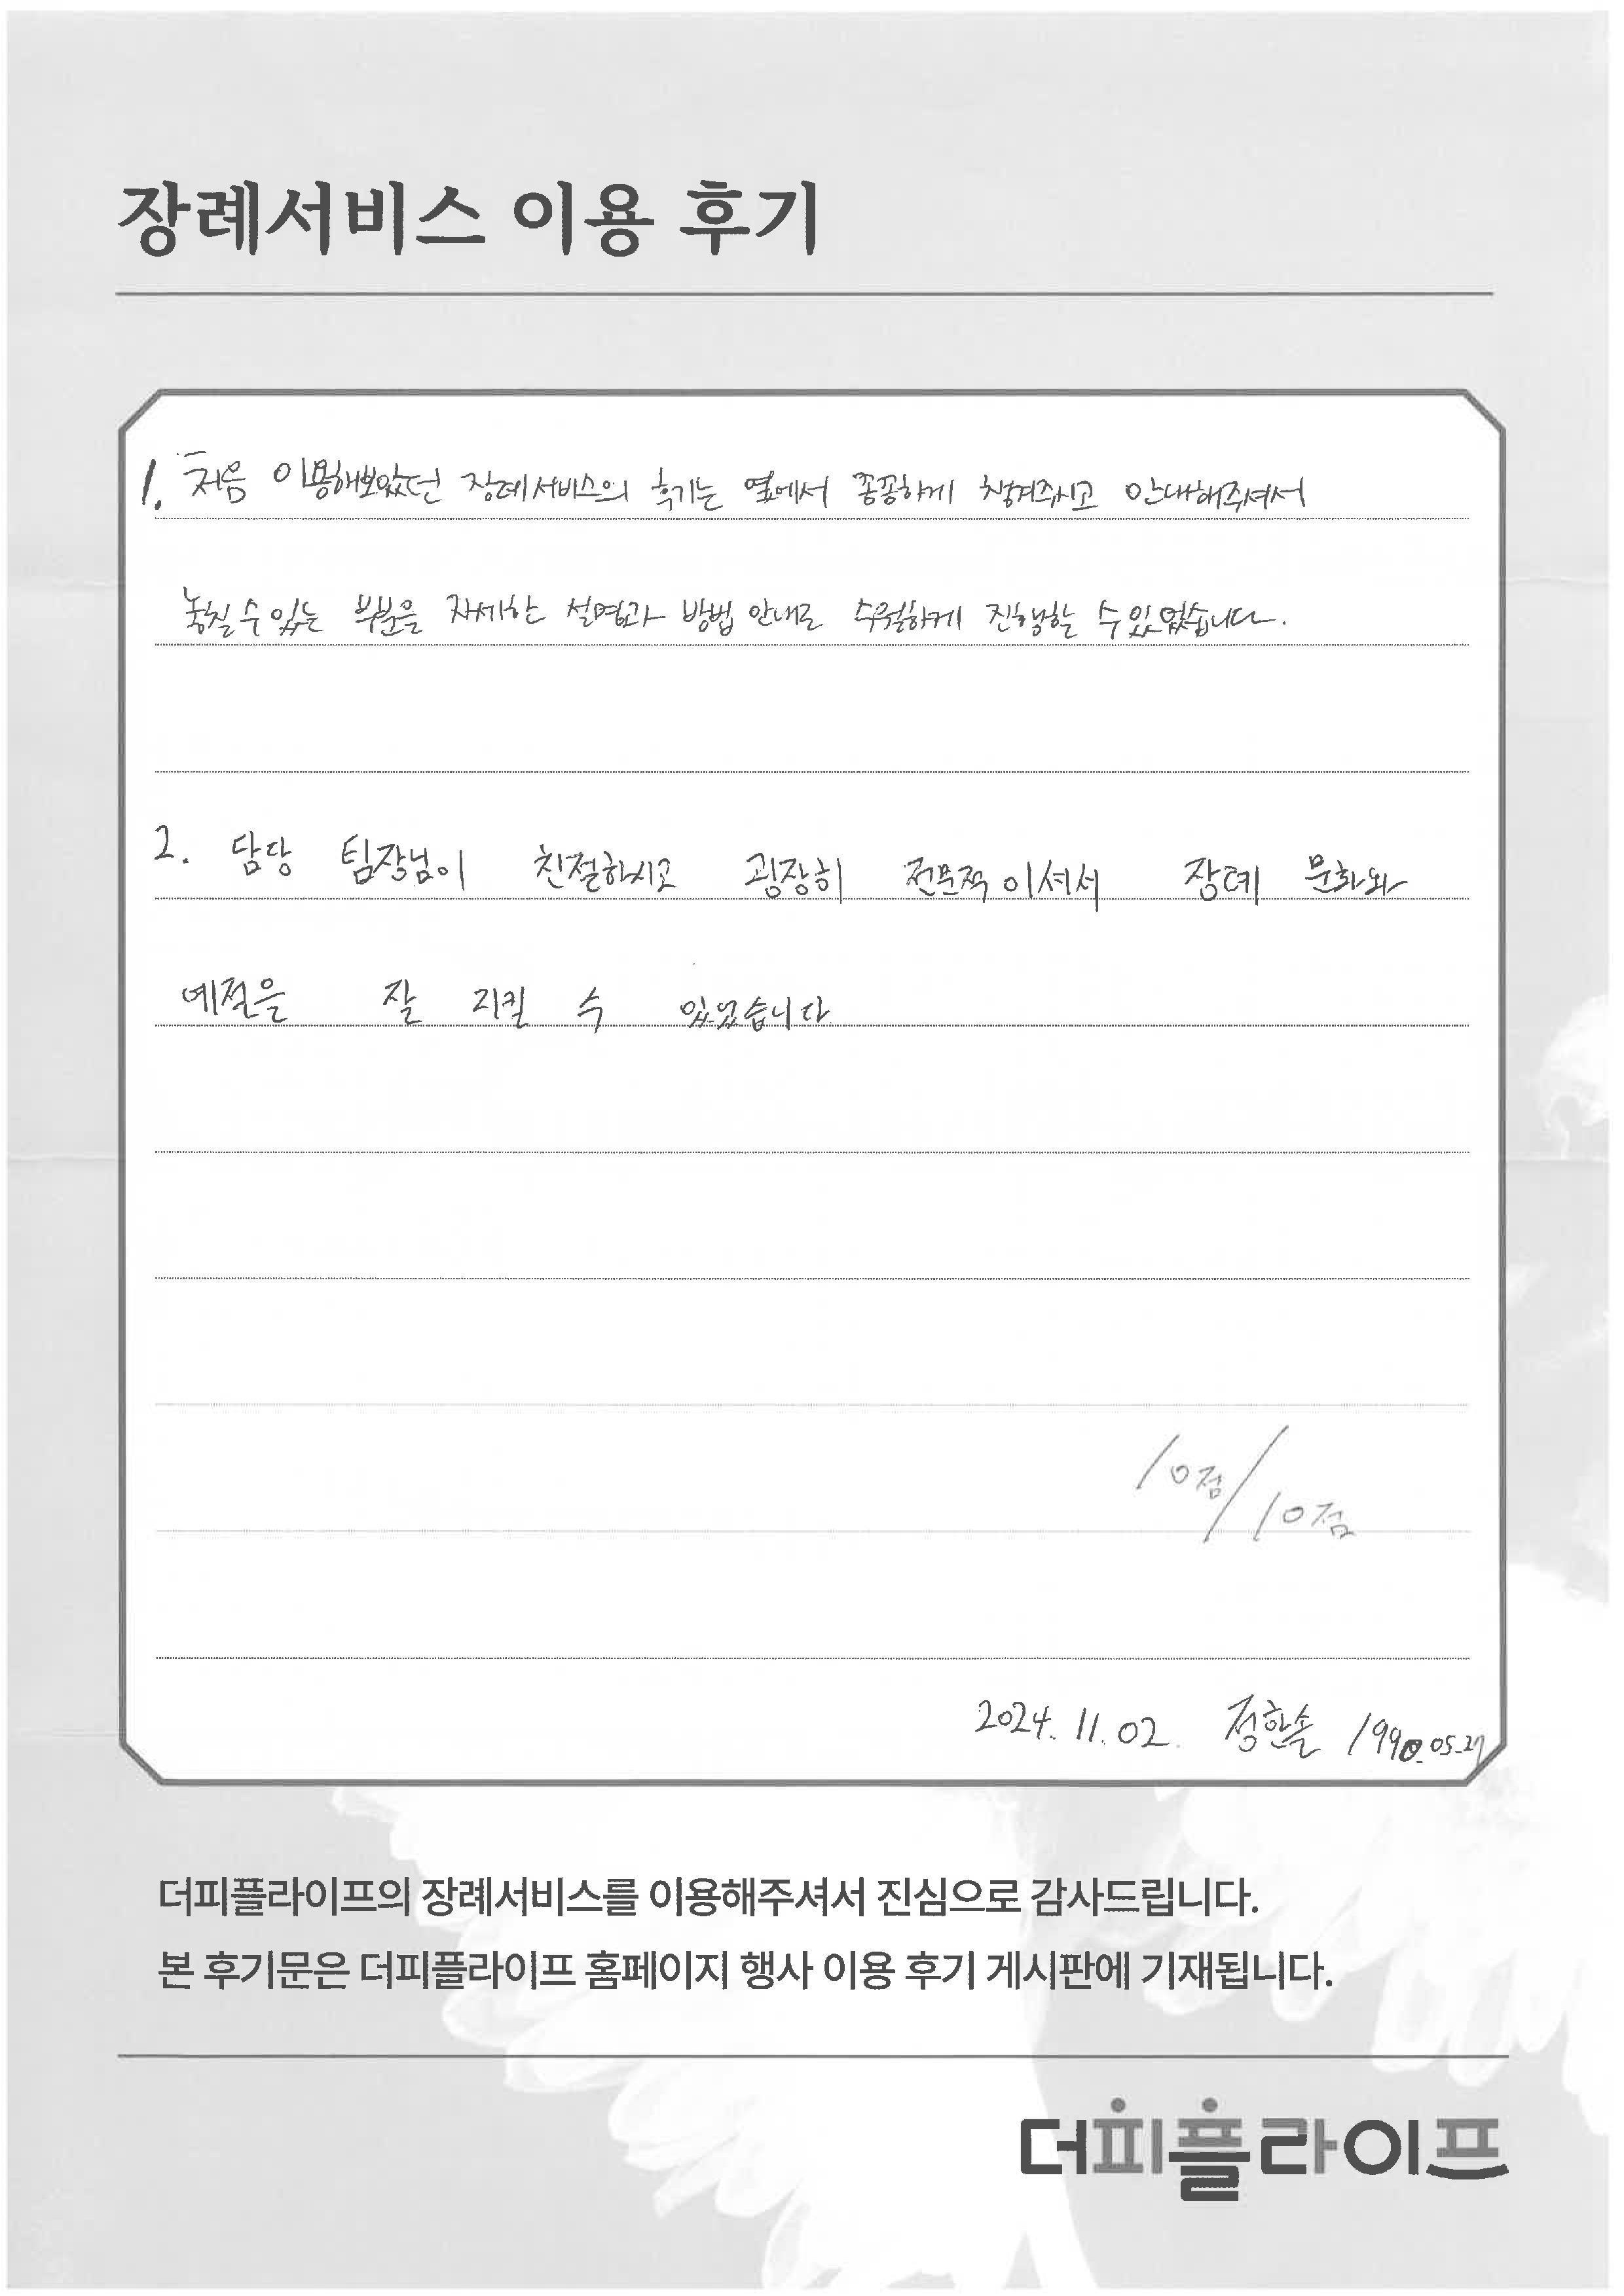 장례서비스 이용 후기
1. 처음 이용해보았던 장례서비스의 후기는 옆에서 꼼꼼하게 챙겨주시고 안내해주셔서
놓칠 수 있는 부분을 자세한 설명과 방법 안내로 수월하게 진행할 수 있었습니다.
2. 담당 팀장님이 친절하시고 굉장히 전문적이셔서 장례 문화와
예절을 잘 지킬 수 있었습니다
10점/10점
2024. 11. 02. 정한솔 1990.05.27
더피플라이프의 장례서비스를 이용해주셔서 진심으로 감사드립니다.
본 후기문은 더피플라이프 홈페이지 행사 이용 후기 게시판에 기재됩니다.
더피플라이프